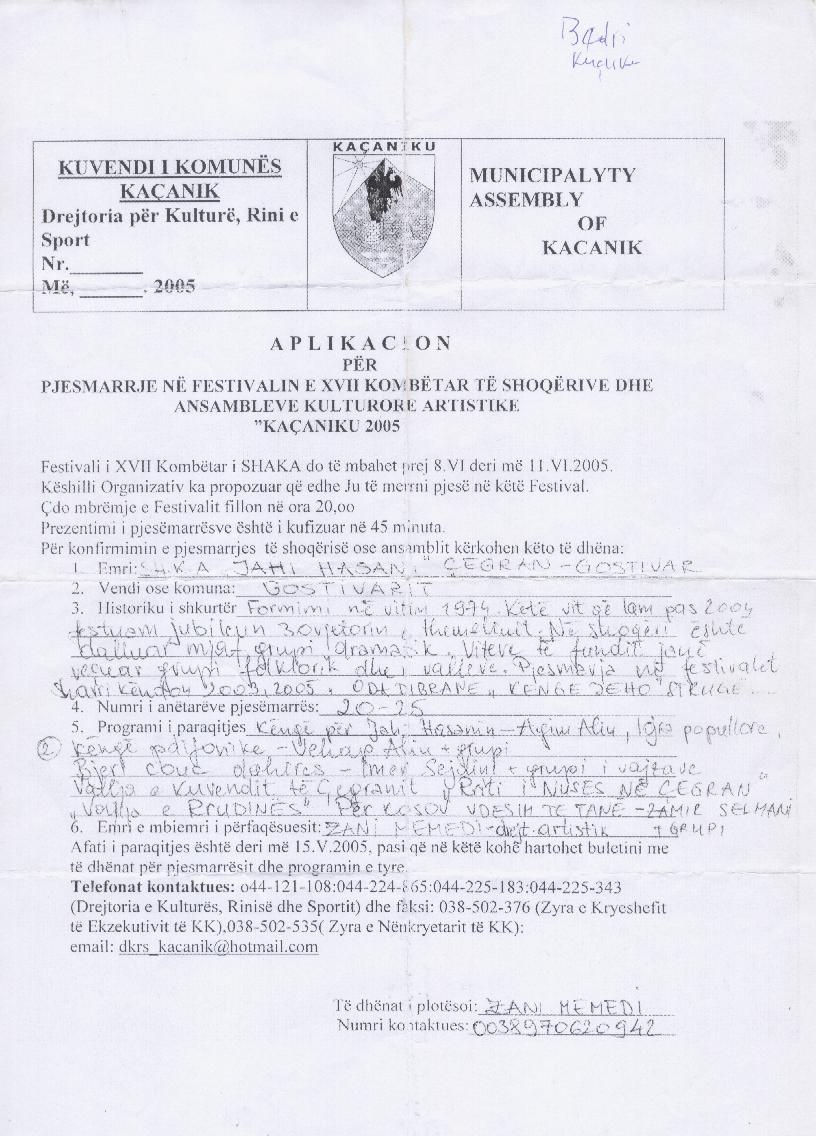 Bedri
KUVENDI I KOMUNËS
KAÇANIK
Drejtoria për Kulturë, Rini e
Sport
Nr.______
Më, ______. 2005
KAÇANIKU
MUNICIPALYTY
ASSEMBLY
OF
KACANIK
A P L I K A C I O N
PËR
PJESMARRJE NË FESTIVALIN E XVII KOMBËTAR TË SHOQËRIVE DHE
ANSAMBLEVE KULTURORE ARTISTIKE
”KAÇANIKU 2005
Festivali i XVII Kombëtar i SHAKA do të mbahet prej 8.VI deri më 11.VI.2005.
Këshilli Organizativ ka propozuar që edhe Ju të merrni pjesë në këtë Festival.
Çdo mbrëmje e Festivalit fillon në ora 20,oo
Prezentimi i pjesëmarrësve është i kufizuar në 45 minuta.
Për konfirmimin e pjesmarrjes të shoqërisë ose ansamblit kërkohen këto të dhëna:
1. Emri: SH.K.A „JAHI HASANI" ÇEGRAN – GOSTIVAR
2. Vendi ose komuna: GOSTIVARIT
3. Historiku i shkurtër Formimi në vitin 1974. Këtë vit që lam pas 2004
festuam jubilejn 30vjetorin e themelimit. Në shoqëri është
dalluar grupi dramatik. Viteve të fundit janë
veçuar grupi folklorik dhe i valleve. Pjesmarja në festivalet
Sharri Këndon 2003, 2005. ODA DIBRANE „KENGE JEHO" STRUGE
4. Numri i anëtarëve pjesëmarrës: 20-25
5. Programi i paraqitjes Këngë për Jahi Hasanin – Agim Aliu, Lojra popullore,
2 Këngë – Vehap Aliu + grupi
Bjeri – Imer Sejdini + grupi i vajzave
Vallja e Kuvendit të Çegranit, Riti i "NUSES NË ÇEGRAN"
„Vallja e RRUDINËS" Për KOSOV VDESIM TE TANE – ZAMIR SELMANI
6. Emri e mbiemri i përfaqësuesit: ZANI MEMEDI – drejt. artistik + GRUPI
Afati i paraqitjes është deri më 15.V.2005, pasi që në këtë kohë hartohet buletini me
të dhënat për pjesmarrësit dhe programin e tyre.
Telefonat kontaktues: o44-121-108:044-224-865:044-225-183:044-225-343
(Drejtoria e Kulturës, Rinisë dhe Sportit) dhe faksi: 038-502-376 (Zyra e Kryeshefit
të Ekzekutivit të KK),038-502-535( Zyra e Nënkryetarit të KK):
email: dkrs_kacanik@hotmail.com
Të dhënat i plotësoi: ZANI MEMEDI
Numri kontaktues: 0038970620942